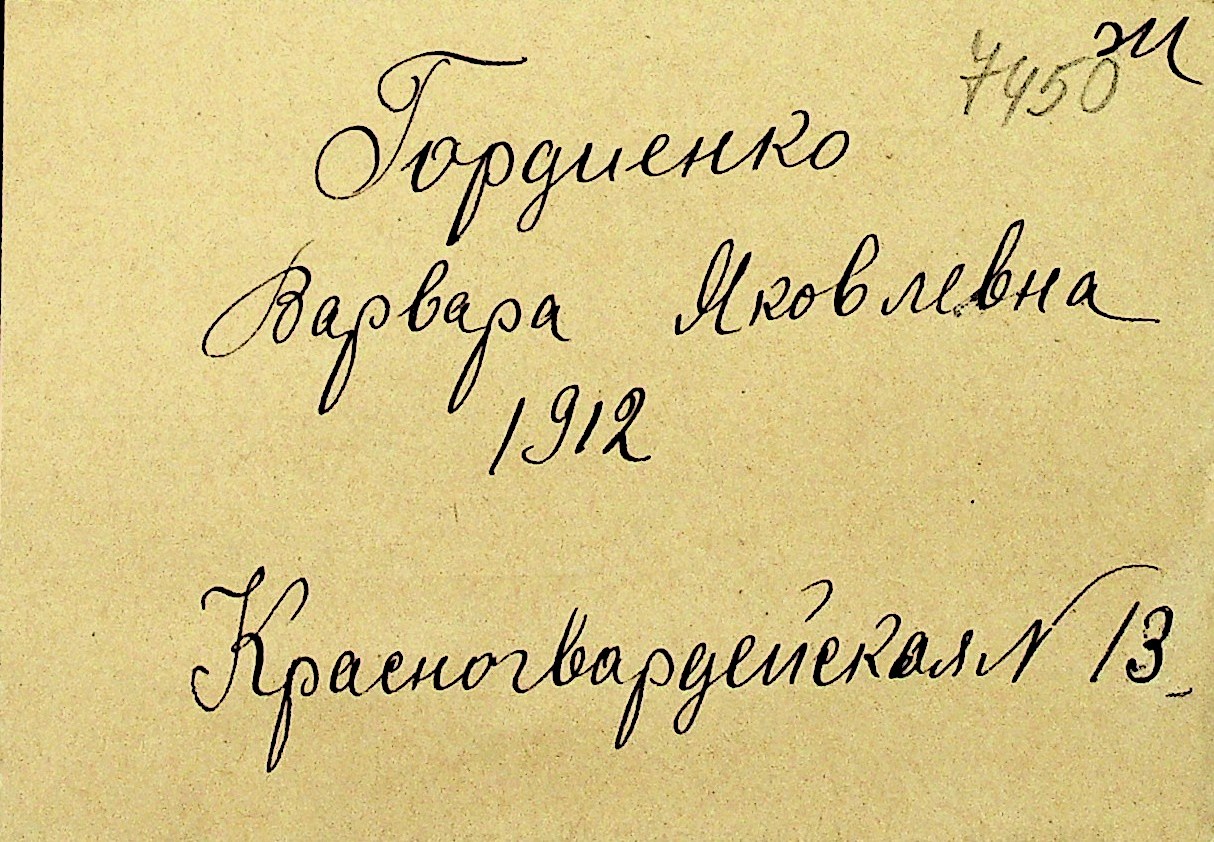 ж
7450
Гордиенко
Варвара Яковлевна
1912
Красногвардейская N 13